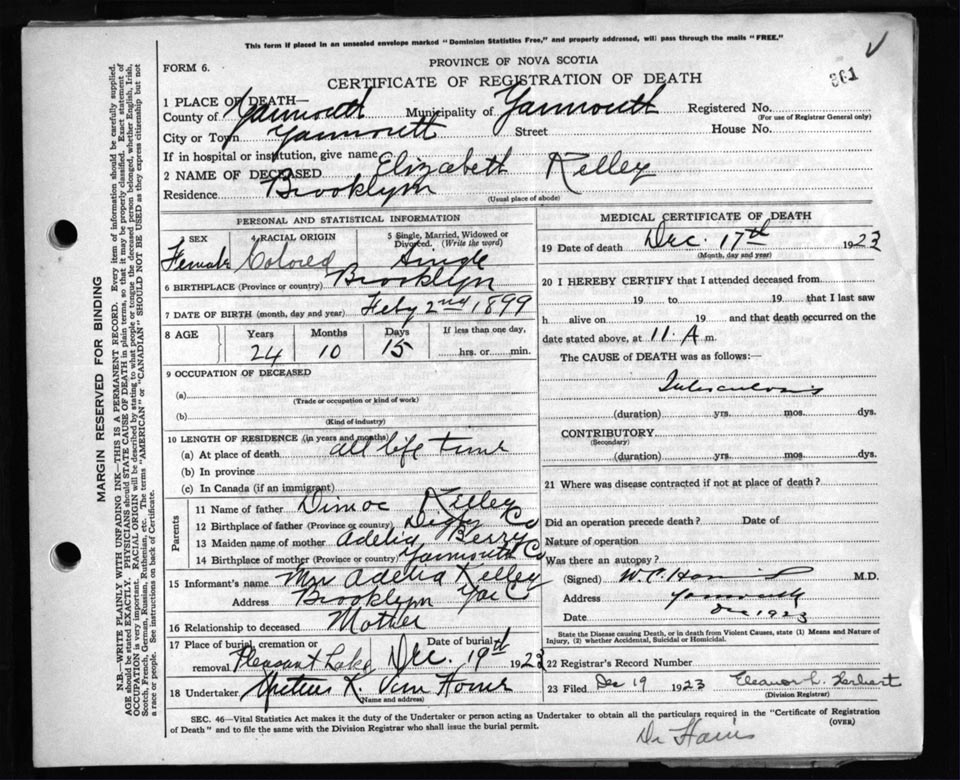 This form if placed in an unsealed envelope marked "Dominion Statistics Free," and properly addressed, will pass through the mails "FREE."
V
PROVINCE OF NOVA SCOTIA
FORM 6.
CERTIFICATE OF REGISTRATION OF DEATH
361
1 PLACE OF DEATH—
County of Yarmouth Municipality of Yarmouth Registered No.
(For use of Registrar General only)
City or Town Yarmouth Street House No.
If in hospital or institution, give name
2 NAME OF DECEASED Elizabeth Kelley
Residence Brooklyn
(Usual place of abode)
PERSONAL AND STATISTICAL INFORMATION
SEX 4 RACIAL ORIGIN 5 Single, Married, Widowed or Divorced. (Write the word)
Female Colored Single
6 BIRTHPLACE (Province or country) Brooklyn
7 DATE OF BIRTH (month, day and year) Feby 2nd 1899
8 AGE Years Months Days If less than one day,
24 10 15 hrs. or min.
9 OCCUPATION OF DECEASED
(a)
(Trade or occupation or kind of work)
(b)
(Kind of industry)
10 LENGTH OF RESIDENCE (in years and months)
(a) At place of death all life time
(b) In province
(c) In Canada (if an immigrant)
Parents
11 Name of father Dimoc Kelley
12 Birthplace of father (Province or country) Digby Co
13 Maiden name of mother Adelia Berry
14 Birthplace of mother (Province or country) Yarmouth Co
15 Informant's name Mrs Adelia Kelley
Address Brooklyn Yar Co
16 Relationship to deceased Mother
17 Place of burial, cremation or removal Pleasant Lake Date of burial Dec. 19th 1923
18 Undertaker K. Van Horne
(Name and address)
MEDICAL CERTIFICATE OF DEATH
19 Date of death Dec. 17th 1923
(Month, day and year)
20 I HEREBY CERTIFY that I attended deceased from
19 to 19 that I last saw
h alive on 19 and that death occurred on the
date stated above, at 11. A m.
The CAUSE of DEATH was as follows:—
Tuberculosis
(duration) yrs. mos. dys.
CONTRIBUTORY
(Secondary)
(duration) yrs. mos. dys.
21 Where was disease contracted if not at place of death?
Did an operation precede death? Date of
Nature of operation
Was there an autopsy?
(Signed) W. C. Harris M.D.
Address Yarmouth
Date Dec 1923
State the Disease causing Death, or in death from Violent Causes, state (1) Means and Nature of
Injury, (2) whether Accidental, Suicidal or Homicidal.
22 Registrar's Record Number
23 Filed Dec 19 1923 Eleanor L. Herbert
(Division Registrar)
SEC. 46—Vital Statistics Act makes it the duty of the Undertaker or person acting as Undertaker to obtain all the particulars required in the "Certificate of Registration
of Death" and to file the same with the Division Registrar who shall issue the burial permit.
(OVER)
Dr Harris
MARGIN RESERVED FOR BINDING
N.B.—WRITE PLAINLY WITH UNFADING INK—THIS IS A PERMANENT RECORD. Every item of information should be carefully supplied.
AGE should be stated EXACTLY. PHYSICIANS should STATE CAUSE OF DEATH in plain terms, so that it may be properly classified. Exact statement of
OCCUPATION is very important. RACIAL ORIGIN will be described by stating to what people or tongue the deceased person belonged, whether English, Irish,
Scotch, French, German, Russian, Ruthenian, etc. The terms "AMERICAN" or "CANADIAN" SHOULD NOT BE USED as they express citizenship but not
a race or people. See instructions on back of Certificate.